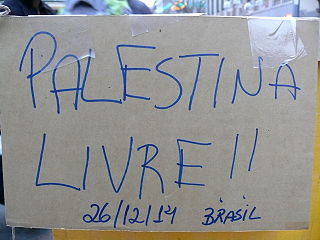 PALESTINA
LIVRE!!
26/12/14 BRASIL